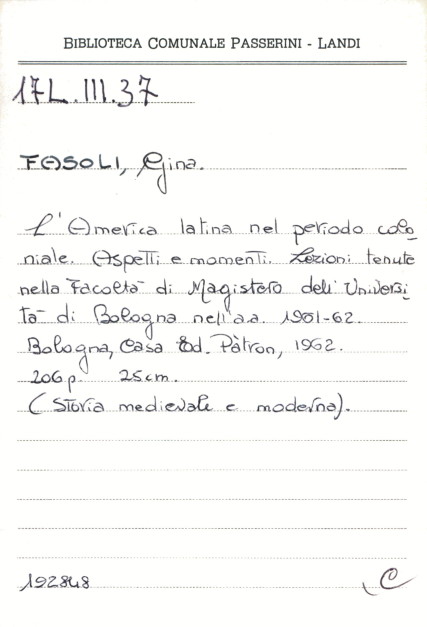 BIBLIOTECA COMUNALE PASSERINI - LANDI
17L.III.37
FASOLI, Gina.
L'America latina nel periodo colo
niale. Aspetti e momenti. Lezioni tenute
nella Facoltà di Magistero dell'Universi
tà di Bologna nell'a.a. 1961-62.
Bologna, Casa Ed. Pàtron, 1962.
206p. 25cm.
(Storia medievale e moderna).
192848 C